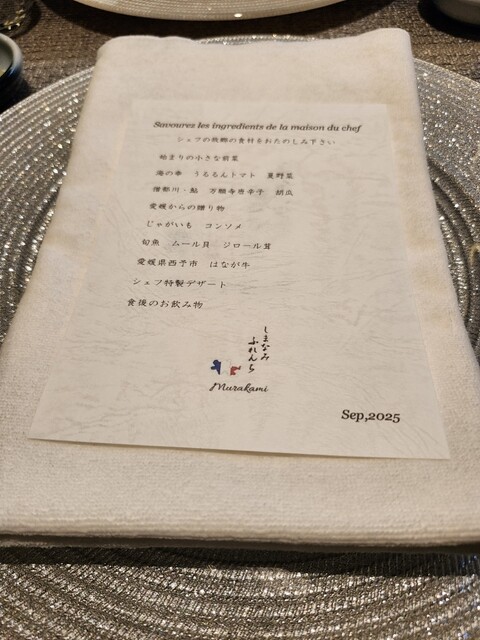 Savoures les ingredients de la maison du chef
シェフの故郷の食材をおたのしみ下さい
始まりの小さな前菜
海の幸 うるるんトマト 夏野菜
僧都川・鮎 万願寺唐辛子 胡瓜
愛媛からの贈り物
じゃがいも コンソメ
旬魚 ムール貝 ジロール茸
愛媛県西予市 はなが牛
シェフ特製デザート
食後のお飲み物
しまなみ
ふれんち
Murakami
Sep,2025